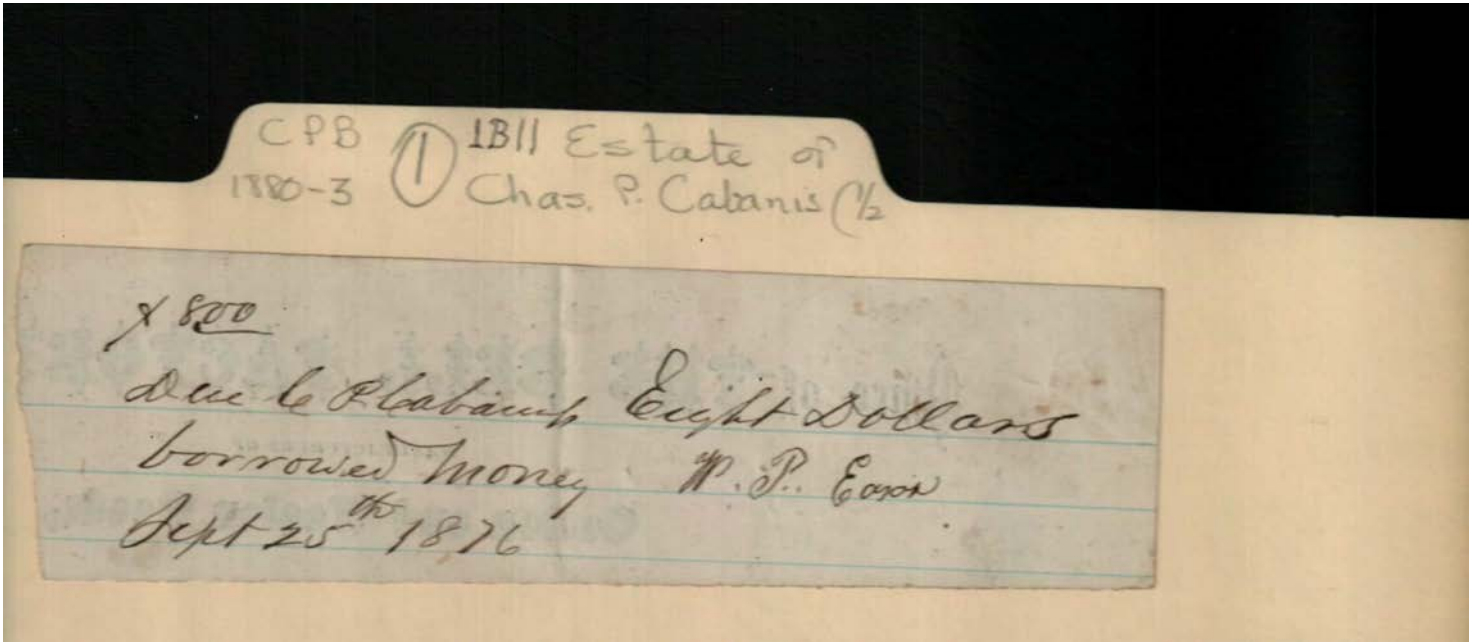 CPB ① 1B11 Estate of
1880-3 Chas. P. Cabanis (1/2
$ 8.00
Due C P Cabanis Eight Dollars
borrowed money W. P.
Sept 25th 1876